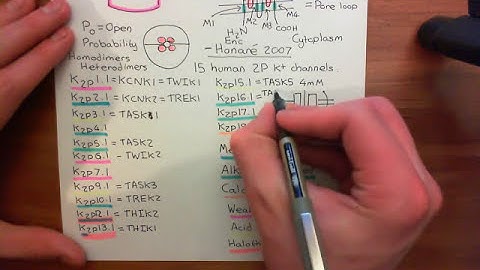 M1
M2
M3
M4
= Pore loop
P₀ = Open
Probability
Homodimers
Heterodimers
H₂N
COOH
Cytoplasm
- Honoré 2007
15 human 2P K⁺ channels.
K₂P1.1 = KCNK1 = TWIK1
K₂P2.1 = KCNK2 = TREK1
K₂P3.1 = TASK1
K₂P4.1
K₂P5.1 = TASK2
K₂P6.1 - TWIK2
K₂P7.1
K₂P9.1 = TASK3
K₂P10.1 = TREK2
K₂P12.1 = THIK2
K₂P13.1 = THIK1
K₂P15.1 = TASK5 4mM
K₂P16.1 = TA
K₂P17.1
K₂P18
Me
Alk
Calc
Weak
Acid
Haloth